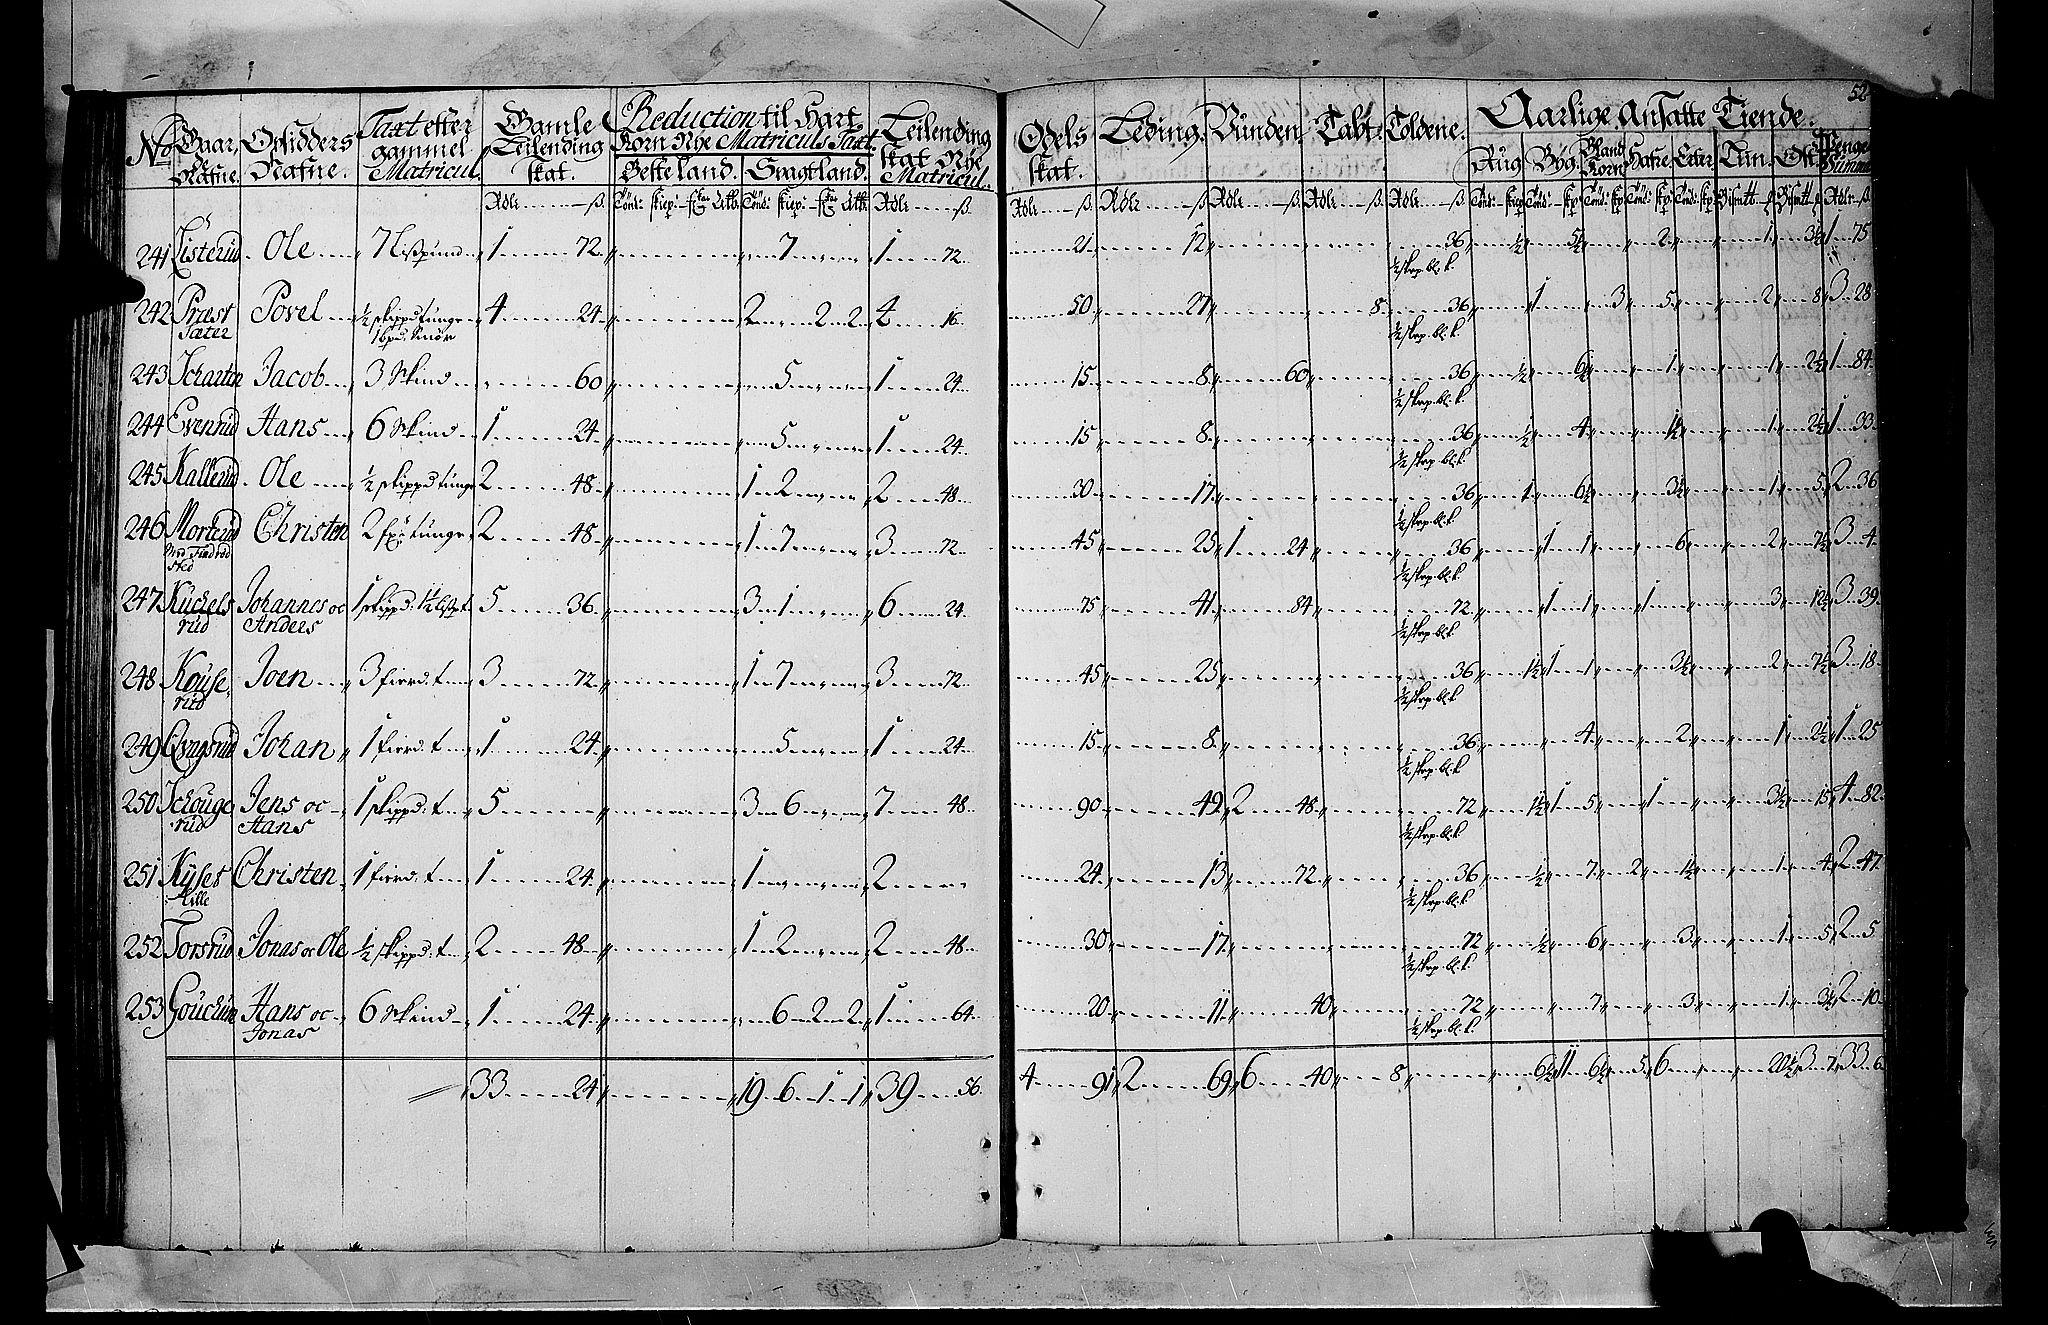 52
No Gaar, de Nafne. Opsidders Nafne. Taxt efter gammel Matricul. Gamle Leilending skat. Reduction til Hart Korn Nye Matriculs Taxt. Leilending skat Nye Matricul.
Besteland. Svagtland.
Odels skat. Leding. Vünden. Tabt. Toldene. Aarlige Ansatte Tiende.
Rüg Byg Bland Korn Hafre Erter Lün. Ost. Penge Sümme
241 Listerüd Ole 7 Lispund 1 72 7 1 72 21 12 36 ½ 5½ 2 1 3½ 1 75
½ skp. bl. k.
242 Præst Povel ½ skippd tünge 4 24 2 2 2 4 16 50 27 8 36 1 3 5 2 8 3 28
Sæter 1 bpd. Smör ½ skp. bl. k.
243 Scharten Jacob 3 Skind 60 5 1 24 15 8 60 36 ½ 6½ 1 1 2½ 1 84
½ skp. bl. k.
244 Evenrüd Hans 6 Skind 1 24 5 1 24 15 8 36 ½ 4 1½ 1 2½ 1 33
½ skp. bl. k.
245 Kallerüd Ole ½ skippd tünge 2 48 1 2 2 48 30 17 36 1 6½ 3½ 1 5 2 36
½ skp. bl. k.
246 Morterüd Christen 2 fx: tünge 2 48 1 7 3 72 45 25 1 24 36 1 1 6 2 7½ 3 4
½ skp. bl. k.
247 Küchels Johannes oc 1 skippd: 1½ 5 36 3 1 6 24 75 41 84 72 1 1 1 3 12½ 3 39
rüd Anders ½ skp. bl. k.
248 Koüse Joen 3 fierd: t 3 72 1 7 3 72 45 25 36 1½ 1 1 3½ 2 7½ 3 18
rüd ½ skp. bl. k.
249 Qvagsrüd Johan 1 fierd: t 1 24 5 1 24 15 8 36 4 2 1 2½ 1 25
½ skp. bl. k.
250 Schouge Jens oc 1 skippd: t 5 3 6 7 48 90 49 2 48 72 1½ 1 5 1 3½ 15 4 82
rüd Hans ½ skp. bl. k.
251 Kyset Christen 1 fierd: t 1 24 1 2 24 13 72 36 ½ 7 2 1½ 1 4 2 47
Lille ½ skp. bl. k.
252 Torsrüd Jonas oc Ole ½ skippd: t 2 48 1 2 2 48 30 17 72 ½ 6 3 1 5 2 5
½ skp. bl. k.
253 Hans oc 6 Skind 1 24 6 2 2 1 64 20 11 40 72 7 3 1 3½ 2 10
Jonas ½ skp. bl. k.
33 24 19 6 1 1 39 56 4 91 2 69 6 40 8 6½ 11 6½ 5 6 20½ 3 7 33 6